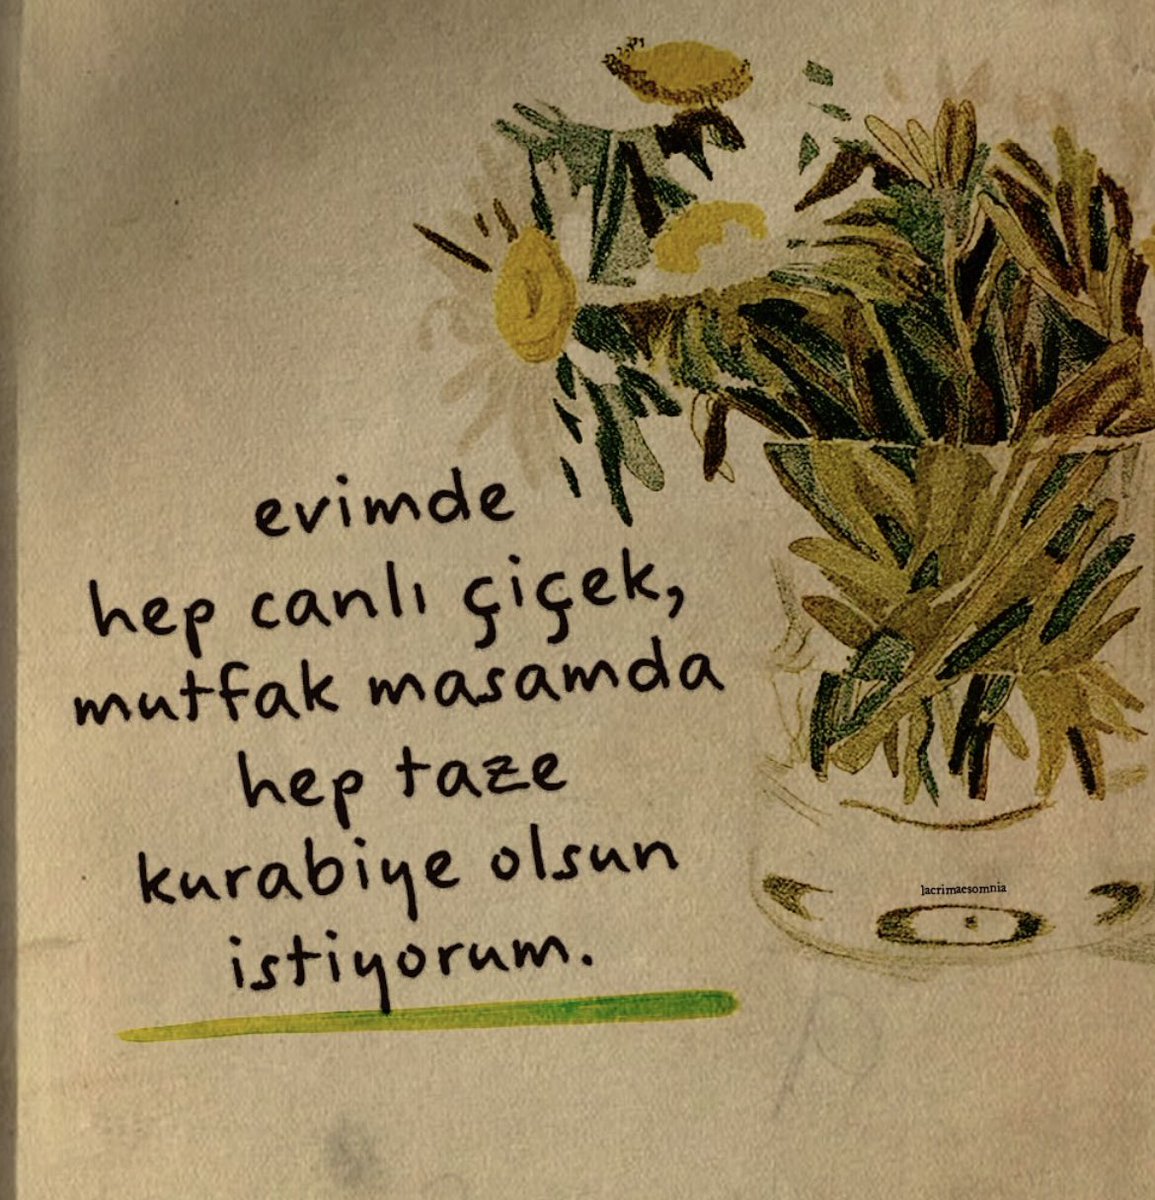 evimde
hep canlı çiçek,
mutfak masamda
hep taze
kurabiye olsun
istiyorum.
lacrimaesomnia